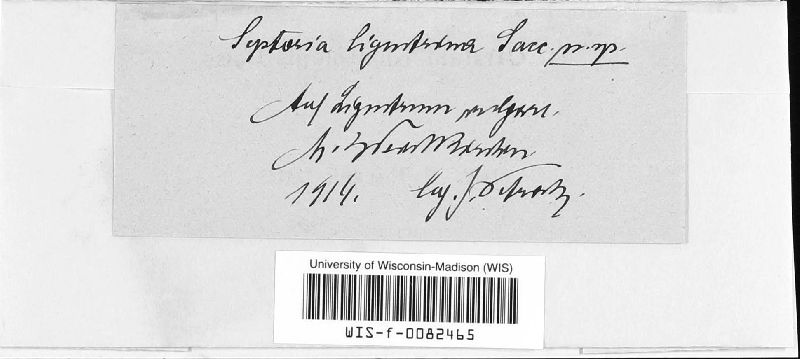 Septoria ligustrina Sacc. n. sp.
Auf Ligustrum vulgare.
M. Weisskirchen
1914. leg. J. Petrak.
University of Wisconsin-Madison (WIS)
WIS-f-0082465